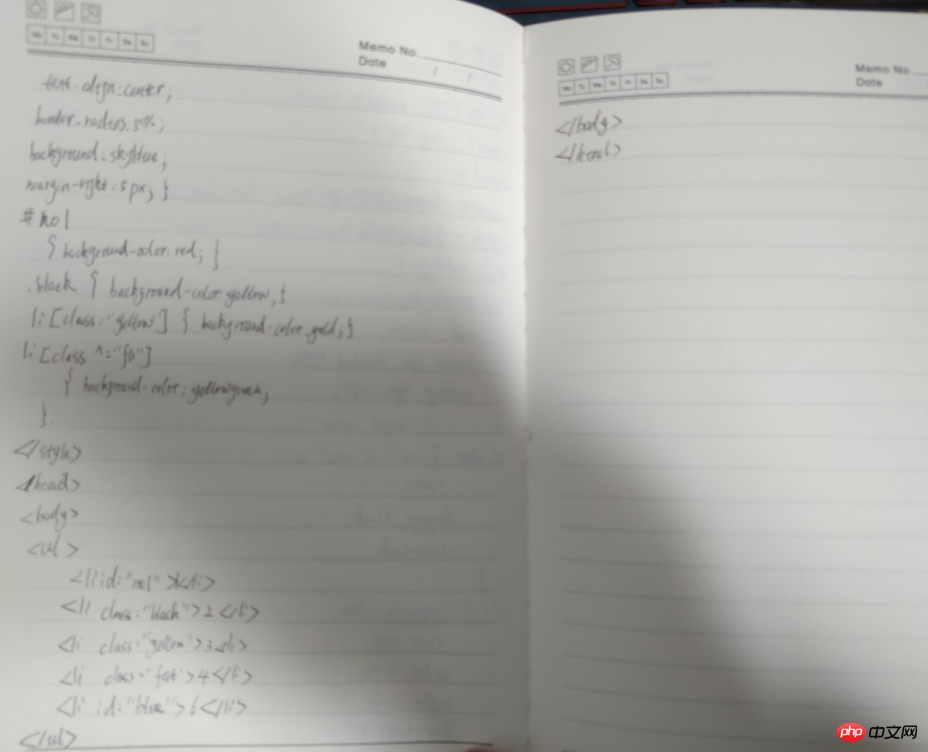 Mo Tu We Th Fr Sa Su
Memo No.
Date / /
text-align:center;
border-radius:50%;
background:skyblue;
margin-right:5px; }
#no1
{ background-color:red; }
.black { background-color:yellow; }
li[class="yellow"] { background-color:gold; }
li[class ^="fa"]
{ background-color:yellowgreen;
}
</style>
</head>
<body>
<ul>
<li id="no1">1</li>
<li class="black">2</li>
<li class="yellow">3</li>
<li class="fat">4</li>
<li id="blue">6</li>
</ul>
Mo Tu We Th Fr Sa Su
Memo No.
Date
</body>
</html>
php 中文网